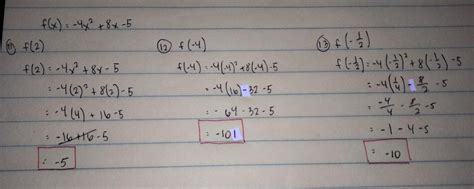 f(x) = -4x² + 8x - 5
11 f(2)
f(2) = -4x² + 8x - 5
= -4(2)² + 8(2) - 5
= -4(4) + 16 - 5
= -16+16 - 5
= -5
12 f(-4)
f(-4) = -4(-4)² + 8(-4) - 5
= -4(16) - 32 - 5
= - 64 - 32 - 5
= -101
13 f(-1/2)
f(-1/2) = -4(-1/2)² + 8(-1/2) - 5
= -4(1/4) - 8/2 - 5
= -4/4 - 8/2 - 5
= -1 - 4 - 5
= -10